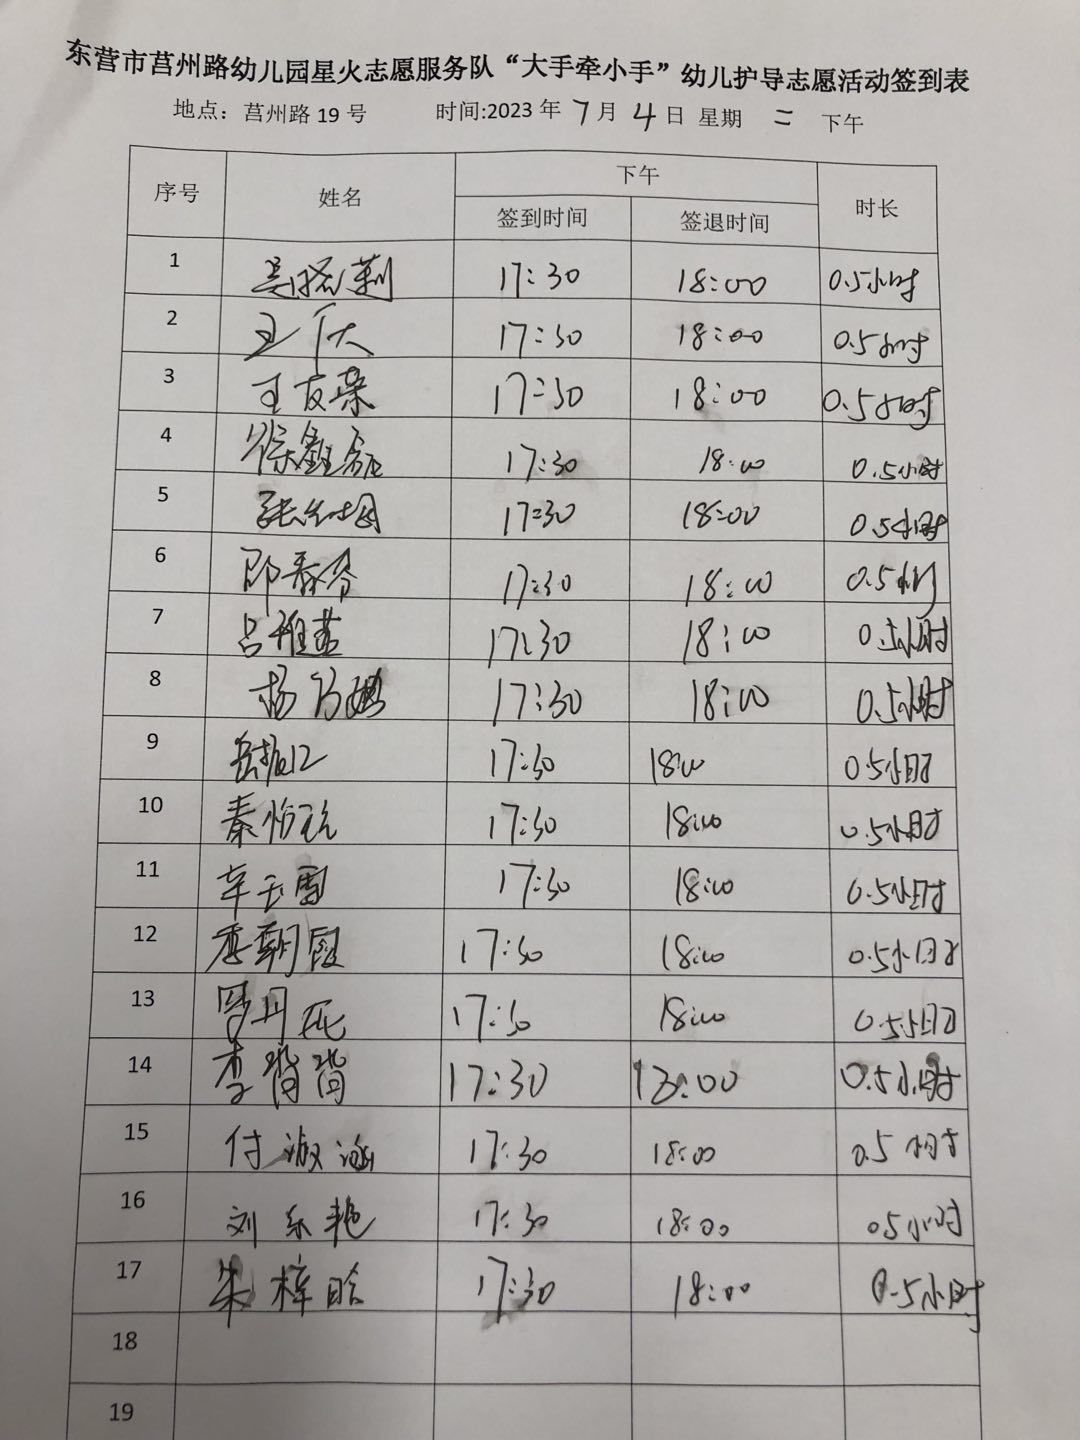 东营市莒州路幼儿园星火志愿服务队“大手牵小手”幼儿护导志愿活动签到表
地点：莒州路 19 号 时间:2023 年 7 月 4 日 星期 二 下午
序号 姓名 下午 时长
签到时间 签退时间
1 17:30 18:00 0.5小时
2 王 17:30 18:00 0.5小时
3 王友荣 17:30 18:00 0.5小时
4 徐鑫 17:30 18:00 0.5小时
5 张 17:30 18:00 0.5小时
6 17:30 18:00 0.5小时
7 吕雅 17:30 18:00 0.5小时
8 杨 17:30 18:00 0.5小时
9 岳 17:30 18:00 0.5小时
10 秦怡 17:30 18:00 0.5小时
11 辛玉雷 17:30 18:00 0.5小时
12 朝霞 17:30 18:00 0.5小时
13 罗丹 17:30 18:00 0.5小时
14 李 17:30 18:00 0.5小时
15 付淑涵 17:30 18:00 0.5小时
16 刘东艳 17:30 18:00 0.5小时
17 朱梓晗 17:30 18:00 0.5小时
18
19